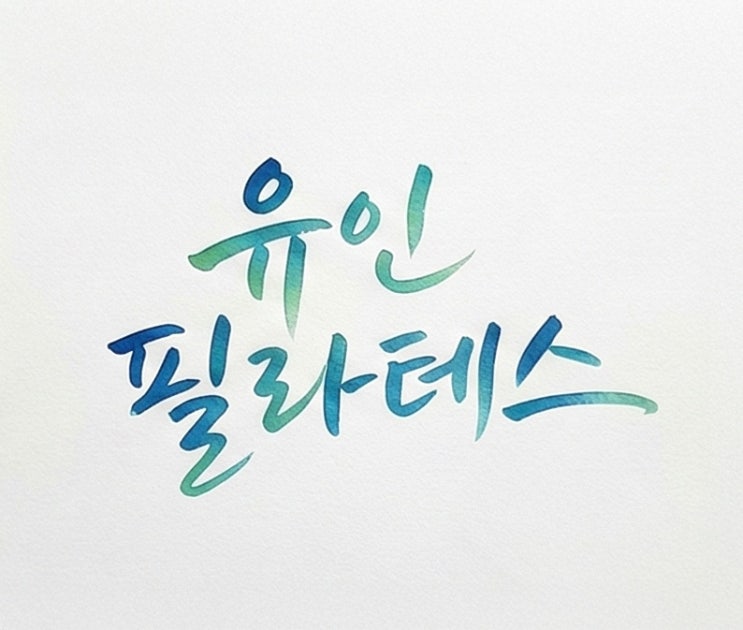 유인
필라테스